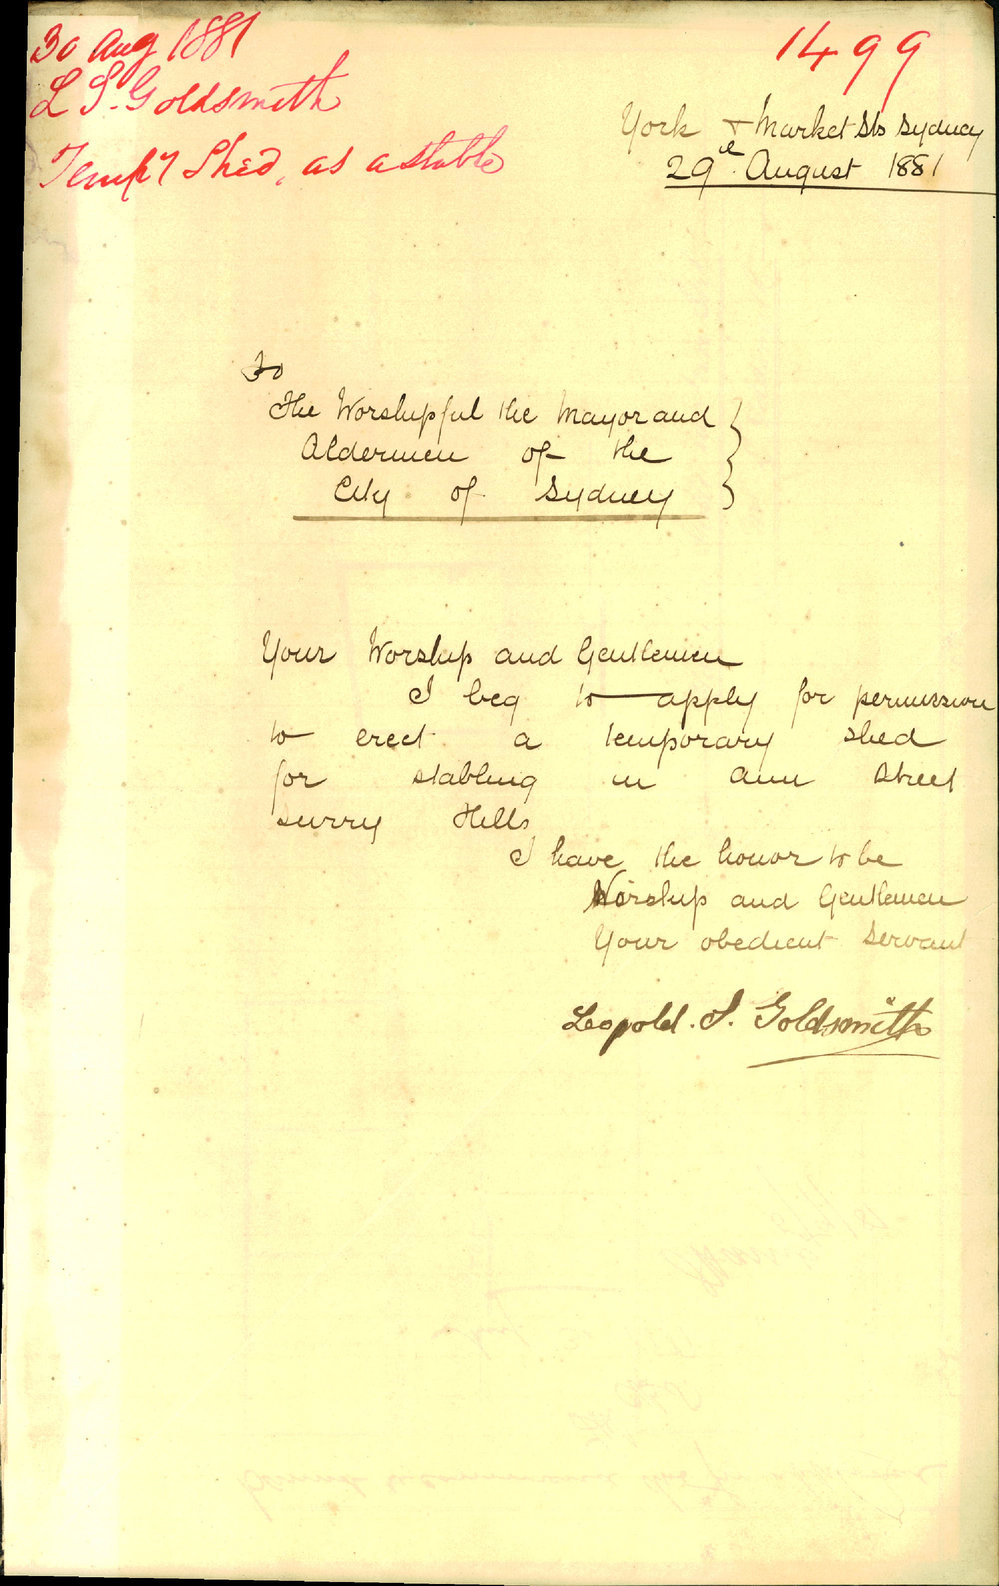 30 Aug 1881
L S. Goldsmith
Temp'y Shed, as a stable
1499
York & Market Sts Sydney
29th August 1881
To
The Worshipful the Mayor and
Aldermen of the
City of Sydney
Your Worship and Gentlemen
I beg to apply for permission
to erect a temporary shed
for stabling in Ann Street
Surry Hills
I have the honor to be
Worship and Gentlemen
Your obedient Servant
Leopold. S. Goldsmith